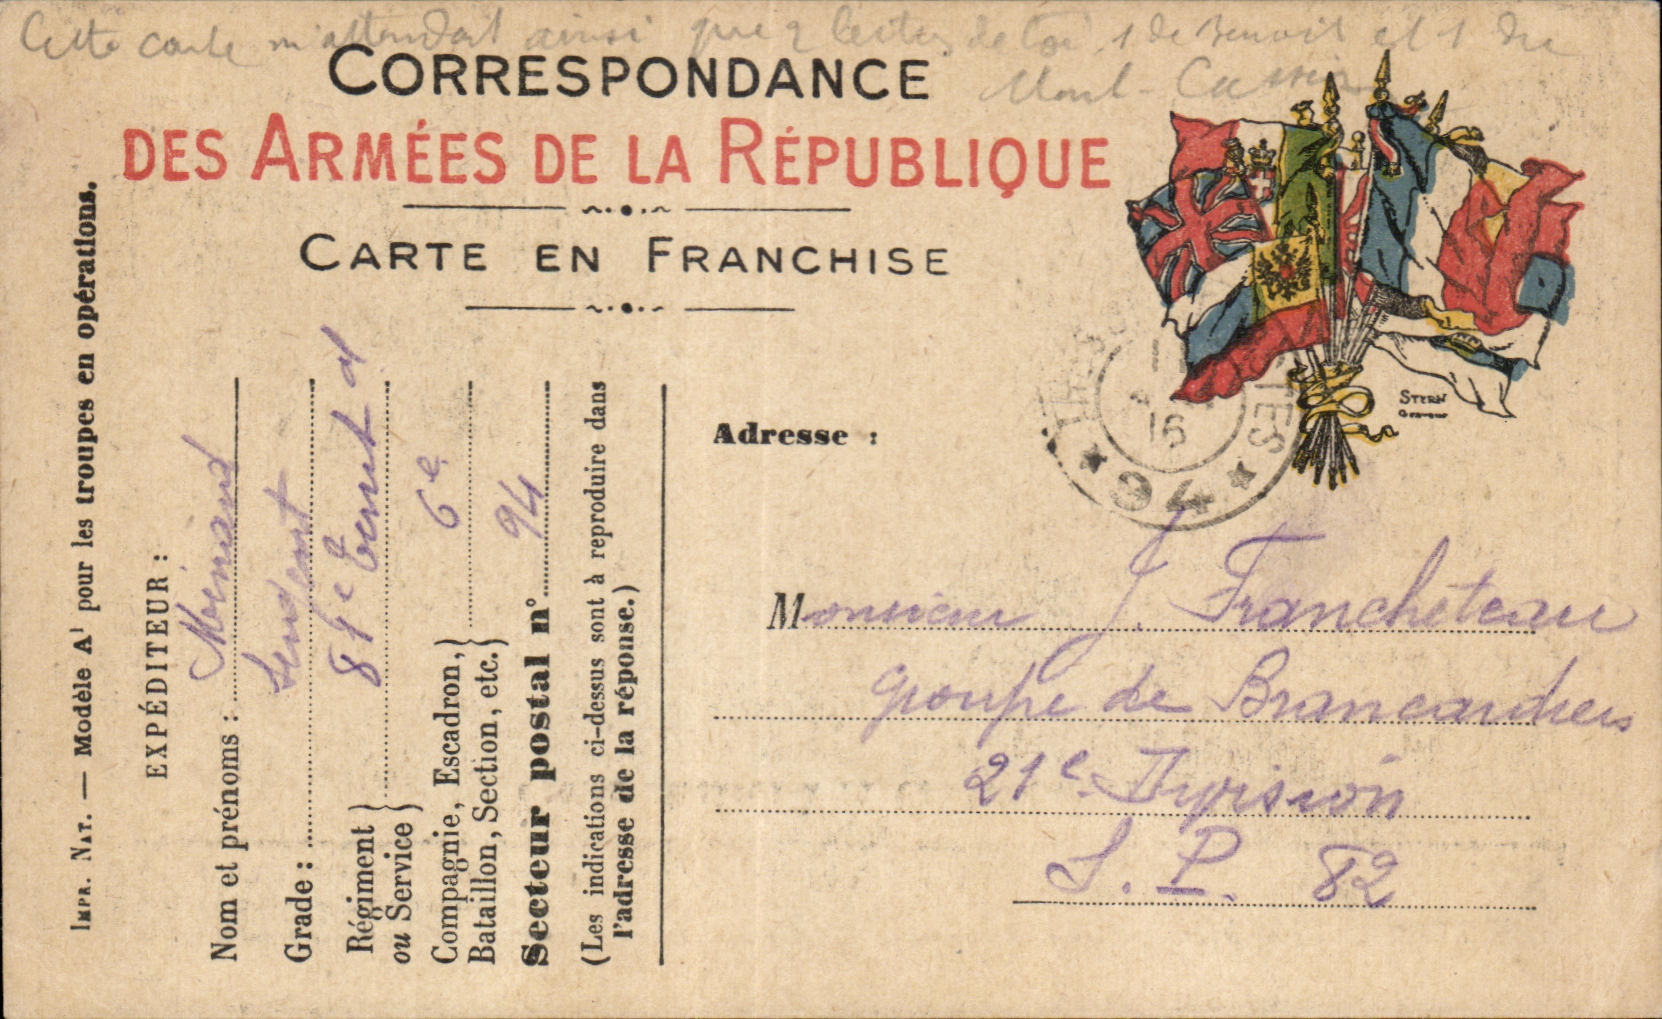 Cette carte m'attendait ainsi que 2 lettres de toi, 1 de Benoit et 1 du
Mont-Cassin
CORRESPONDANCE
DES ARMÉES DE LA RÉPUBLIQUE
CARTE EN FRANCHISE
IMPR. NAT. — Modèle A¹ pour les troupes en opérations.
EXPÉDITEUR :
Nom et prénoms : Moinard
Grade : Sergent
Régiment ou Service } 81e Territ al
Compagnie, Escadron, Bataillon, Section, etc. } 6e
Secteur postal n° 94
(Les indications ci-dessus sont à reproduire dans
l'adresse de la réponse.)
16
★ 94 ★
STERN
Graveur
Adresse :
Monsieur J. Francheteau
groupe de Brancardiers
21e Division
S. P. 82